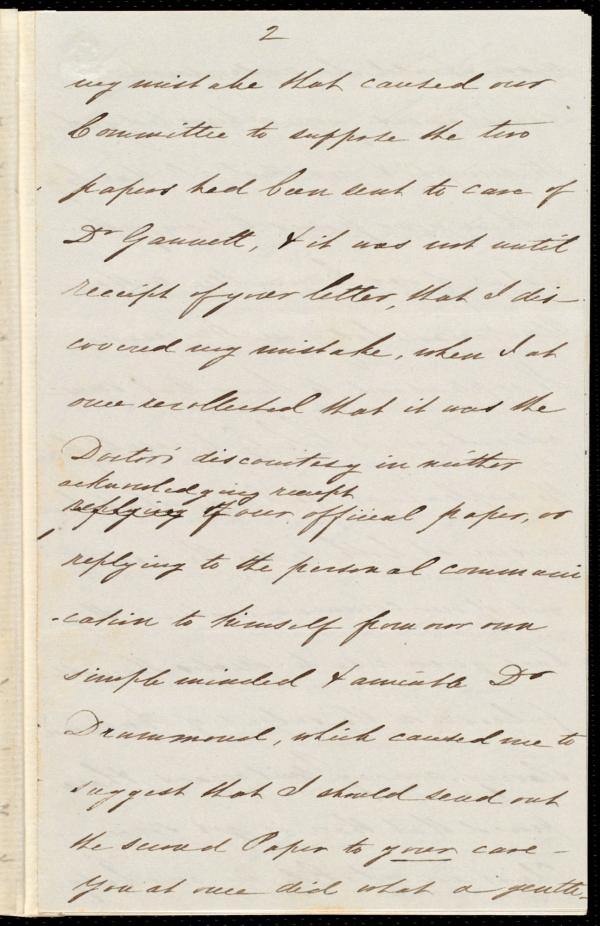 2
my mistake that caused our
Committee to suppose the two
papers had been sent to care of
Dr Gannett, & it was not until
receipt of your letter, that I dis-
covered my mistake, when I at
once recollected that it was the
Doctor's discourtesy in neither
acknowledging receipt
replying of our official paper, or
replying to the personal communi
-cation to himself from our own
simple minded & amiable Dr
Drummond, which caused me to
suggest that I should send out
the second Paper to your care -
You at once did what a gentle-